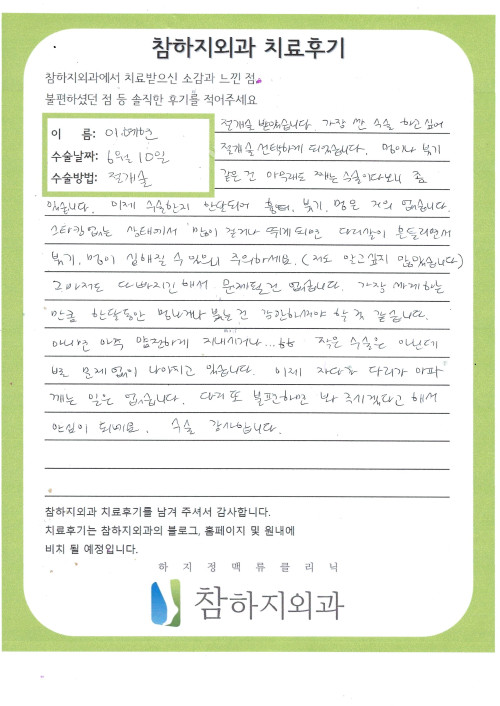 참하지외과 치료후기
참하지외과에서 치료받으신 소감과 느낀 점,
불편하셨던 점 등 솔직한 후기를 적어주세요
이 름: 이예현
수술날짜: 6월 10일
수술방법: 절개술
절개술 받았습니다. 가장 싼 수술 하고 싶어
절개술 선택하게 되었습니다. 멍이나 붓기
같은 건 아무래도 째는 수술이다보니 좀
있습니다. 이제 수술한지 한달되어 흉터, 붓기, 멍은 거의 없습니다.
스타킹없는 상태에서 많이 걷거나 뛰게되면 다리살이 흔들리면서
붓기, 멍이 심해질 수 있으니 주의하세요. (저도 알고 싶지 않았습니다)
그마저도 다 빠지긴 해서 문제될 건 없습니다. 가장 싸게하는
만큼 한달동안 멍나거나 붓는 건 각안하셔야 할 것 같습니다.
아니면 아주 얌전하게 지내시거나...ㅎㅎ 작은 수술은 아닌데
별 문제없이 나아지고 있습니다. 이제 자다가 다리가 아파
깨는 일은 없습니다. 다리 또 불편하면 봐 주시겠다고 해서
안심이 되네요. 수술 감사합니다.
참하지외과 치료후기를 남겨 주셔서 감사합니다.
치료후기는 참하지외과의 블로그, 홈페이지 및 원내에
비치 될 예정입니다.
하지정맥류클리닉
참하지외과